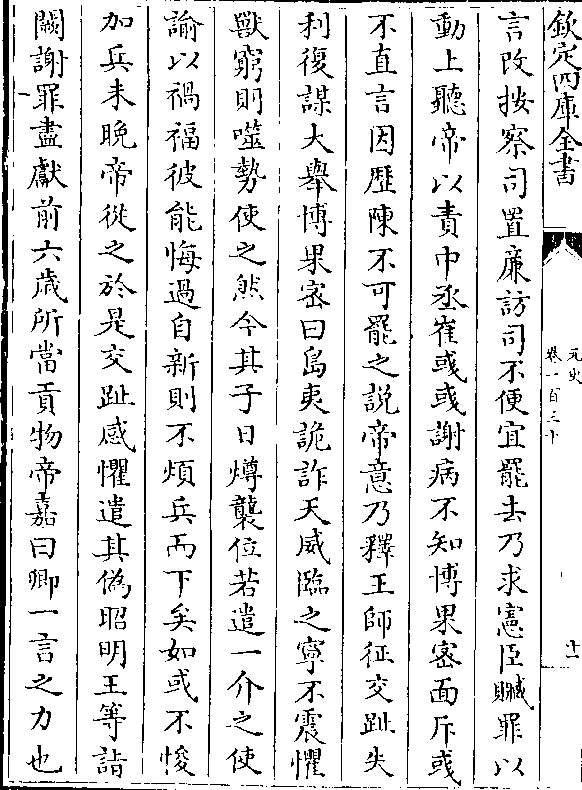 欽定四庫全書
元史
卷一百三十
十一
言改按察司置廉訪司不便宜罷去乃求憲臣贓罪以
動上聽帝以責中丞崔彧彧謝病不知博果密面斥彧
不直言因歷陳不可罷之說帝意乃釋王師征交趾失
利復謀大舉博果密曰島夷詭詐天威臨之寧不震懼
獸窮則噬勢使之然今其子日燇襲位若遣一介之使
諭以禍福彼能悔過自新則不煩兵而下矣如或不悛
加兵未晚帝從之於是交趾感懼遣其偽昭明王等詣
闕謝罪盡獻前六歲所當貢物帝嘉曰卿一言之力也